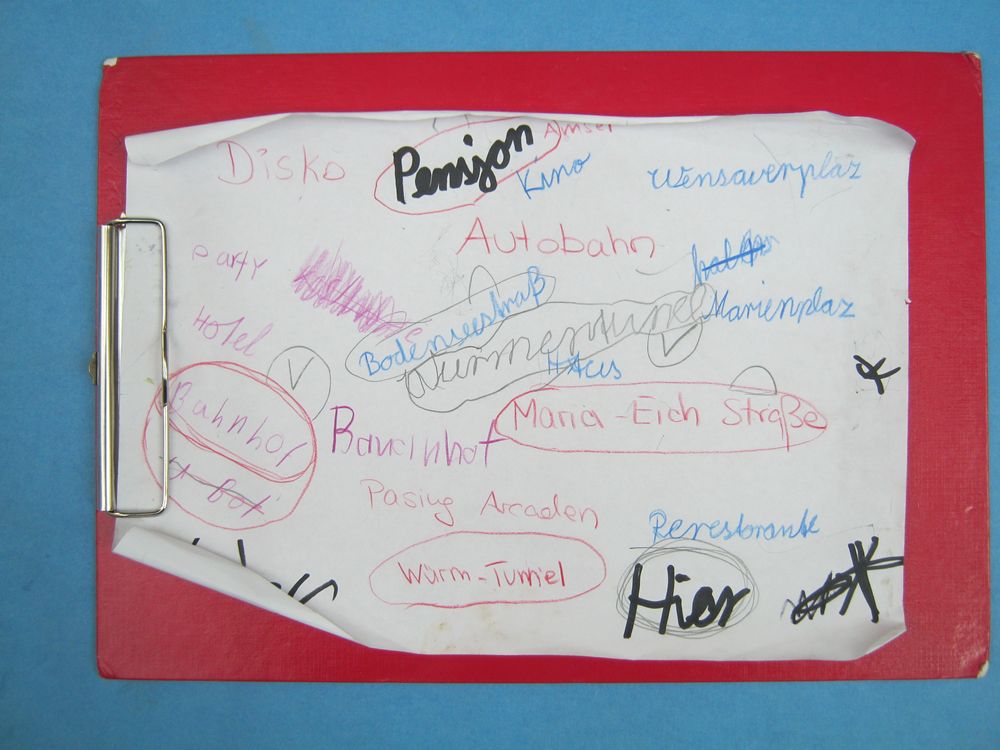 Disko
Pension
Amsel
Kino
Wensauerplaz
Autobahn
Party
Marienplaz
Hotel
Bodenseestraß
HAus
Bahnhof
Maria-Eich Straße
Pasing Arcaden
Rerestorante
Würm-Tunnel
Hier